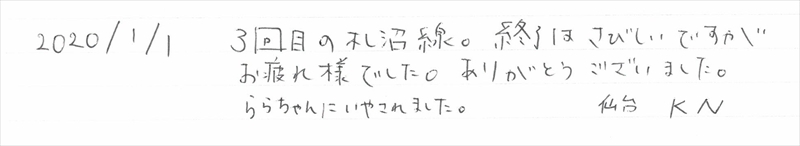 2020/1/1 3回目の札沼線。終了はさびしいですが
お疲れ様でした。ありがとうございました。
ららちゃんにいやされました。 仙台 KN